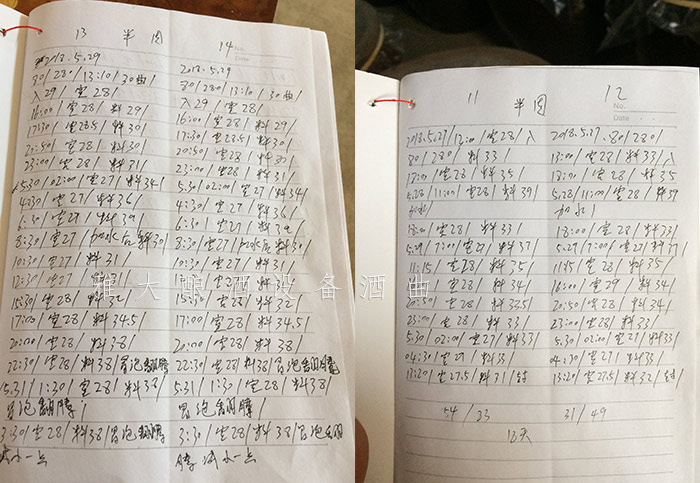 13 半肉 14
No.
Date
2018.5.29
30/28/13:10/30曲/
入29/空28/
16:00/空28/料29/
17:30/空28.5/料30/
20:50/空28/料30/
23:00/空28/料31/
5.30/02:00/空27/料34/
4:30/空27/料36/
6:30/空27/料39/
8:30/空27/加水后料30/
10:30/空27/料31/
12:30/空27/料31/
15:30/空28/料32/
17:00/空28/料34.5/
20:00/空28/料38/
22:30/空28/料38/冒泡翻腾
5.31/1:30/空28/料38/
冒泡翻腾/
3:30/空28/料38/冒泡翻腾
减小一点
2018.5.29
30/280/13:10/30曲/
入29/空28/
16:00/空28/料29/
17:30/空28.5/料30/
20:50/空28/料30/
23:00/空28/料31/
5.30/02:00/空27/料34/
4:30/空27/料36/
6:30/空27/料39/
8:30/空27/加水后料30/
10:30/空27/料31/
空27/料31/
15:30/空28/料32/
17:00/空28/料34.5/
20:00/空28/料38/
22:30/空28/料38/冒泡翻腾
5.31/1:30/空28/料38/
冒泡翻腾/
3:30/空28/料38/冒泡翻
腾 减小一点
11 半肉 12
No.
Date
2018.5.27/12:00/空28/入
30/280/料33/
18:00/空28/料35/
5.28/11:00/空28/料39/
加水/
18:00/空28/料33/
5.29/7:00/空27/料37/
11:15/空28/料35/
空28/料34/
20:50/空28/料33.5/
23:00/空28/料33/
5.30/02:00/空27/料33/
04:30/空27/料33/
13:20/空27.5/料31/封
2018.5.27.30/280/
13:00/空28/料33/入
18:00/空28/料35/
5.28/11:00/空28/料39
加水/
18:00/空28/料33/
5.29/7:00/空27/料37/
11:15/空28/料35/
16:00/空29/料34/
20:50/空28/料34/
23:00/空28/料33/
5.30/02:00/空27/料33/
04:30/空27/料33/
13:20/空27.5/料32/封
54/33 31/49
12天
雅大酿酒设备酒曲